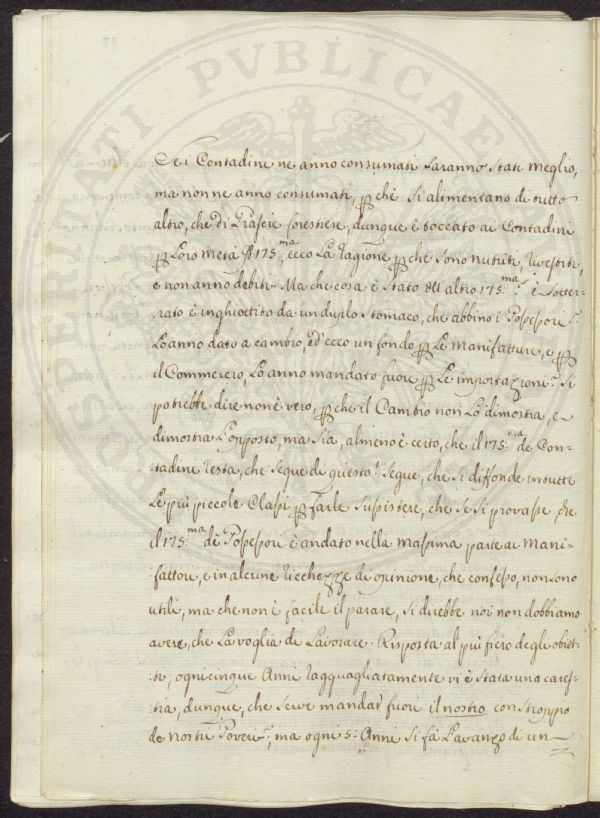 PROSPERITATI PVBLICAE
Se i Contadini ne anno consumati saranno stati meglio,
ma non ne anno consumati, p chè si alimentano di tutto
altro, che di Grascie forestiere, dunque è toccato ai Contadini
p Loro metà 175:ma, ecco La ragione p che sono nutriti, rivestiti,
e non anno debiti. Ma che cosa è stato dell altro 175:ma? è sotter-
rato è inghiottito da un duplo stomaco, che abbino i Possessori?
Lo anno dato a cambio, ed'ecco un fondo p Le Manifatture, e p
il Commercio, Lo anno mandato fuori p Le importazioni? Si
potrebbe dire non è vero, p che il Cambio non Lo dimostra, e
dimostra L'opposto, ma sia, almeno è certo, che il 175:ma de Con-
tadini resta, che segue di questo? segue, che si diffonde in tutte
Le più piccole Classi p farle sussistere, che se si provasse, che
il 175:ma dè Possessori è andato nella massima parte ai Mani-
fattori, e in alcune ricchezze di opinione, che confesso, non sono
utili, ma che non è facile il parare, si direbbe noi non dobbiamo
avere, che La voglia de Lavorare. Risposta al più fiero degli obiet-
ti; ogni cinque Anni ragguagliatamente vi è stata una cares-
tia, dunque, che serve mandar fuori il nostro con stroppio
de nostri Poveri?, ma ogni 5: Anni si fà L'avanzo di un